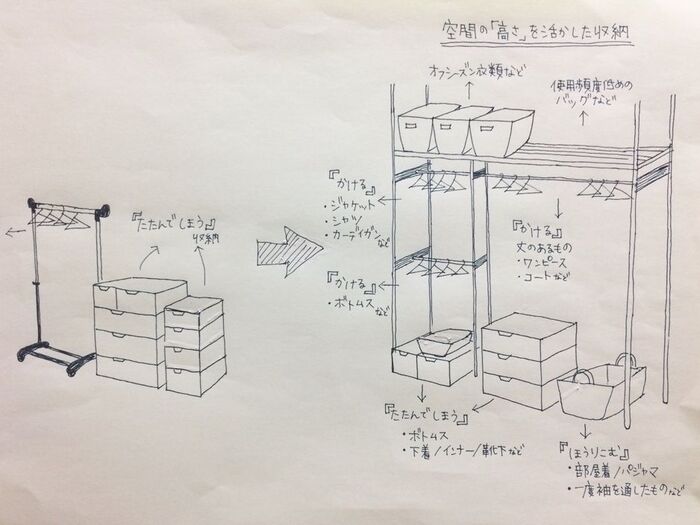 空間の「高さ」を活かした収納
オフシーズン衣類など
使用頻度低めの
バッグなど
『たたんでしまう』
収納
『かける』
・ジャケット
・シャツ
・カーディガンなど
『かける』
・ボトムスなど
『かける』
丈のあるもの
・ワンピース
・コートなど
『たたんでしまう』
・ボトムス
・下着/インナー/靴下など
『ほうりこむ』
・部屋着/パジャマ
・一度袖を通したものなど